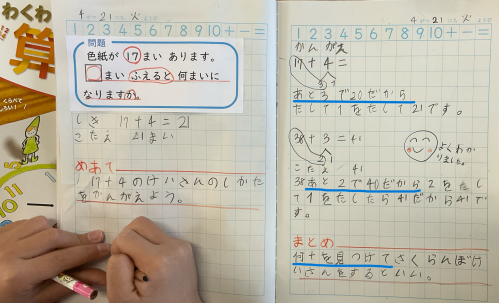 わくわく
算
4がつ21にち火
1 2 3 4 5 6 7 8 9 10 + - =
問題
色紙が 17まい あります。
□まい ふえると 何まいに
なりますか。
しき 17+4=21
こたえ 21まい
めあて
17+4のけいさんのしかた
をかんがえよう。
4がつ21にち火
1 2 3 4 5 6 7 8 9 10 + - =
かんがえ
17+4=
3 1
あと3で20だから
たして1をたして21です。
38+3=41
2 1
よくわかりました。
こたえ 41
38あと2で40だから2をたし
て1をたしたら41だから41で
す。
まとめ
何十を見つけてさくらんぼけ
いさんをするといい。